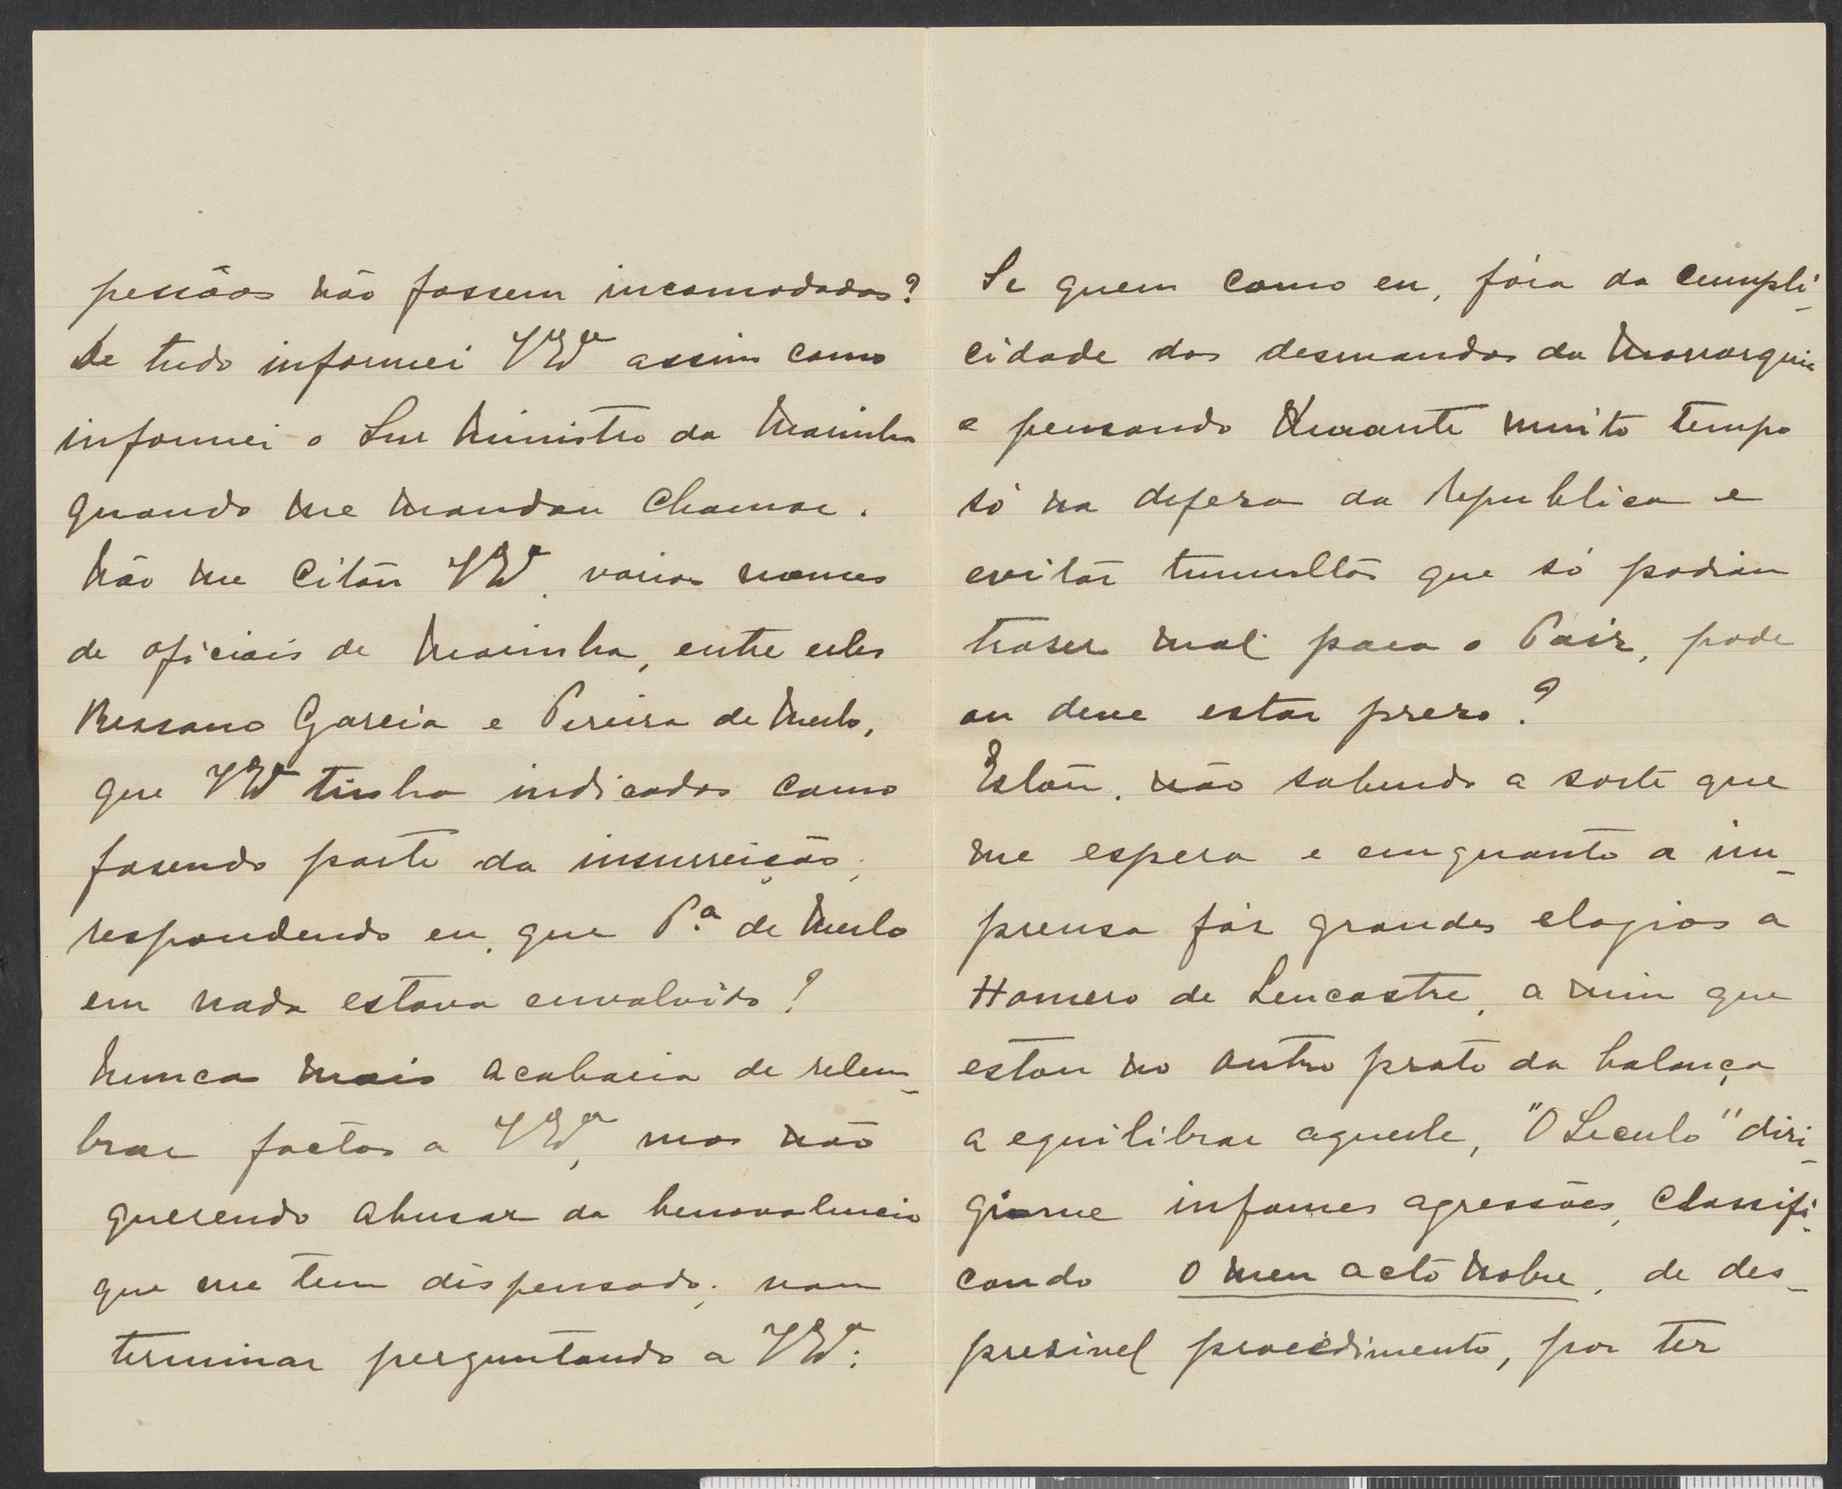 pessôas não fossem incomodadas?
De tudo informei V Exª assim como
informei o Snr Ministro da Marinha
quando me mandou chamar.
Não me citou V Exª varios nomes
de oficiais de Marinha, entre eles
Ressano Garcia e Pereira de Melo,
que V Exª tinha indicados como
fasendo parte da insurreição;
respondendo eu, que Pª de Melo
em nada estava envolvido?
Nunca mais acabaria de relem-
brar factos a V Exª, mas não
querendo abusar da benevolencia
que me tem dispensado; vou
terminar perguntando a V Exª:
Se quem como eu, fóra da cumpli-
cidade dos desmandos da Monarquia
e pensando durante muito tempo
só na defesa da Republica e
evitar tumultos que só podiam
traser mal para o Paiz, pode
ou deve estar prezo?
Estou, não sabendo a sorte que
me espera e emquanto a im-
prensa fáz grandes elogios a
Homero de Lencastre, a mim que
estou no outro prato da balança
a equilibrar aquele, "O Seculo" diri-
giume infames agressões, classifi-
cando o meu acto nobre, de des-
presivel procedimento, por ter